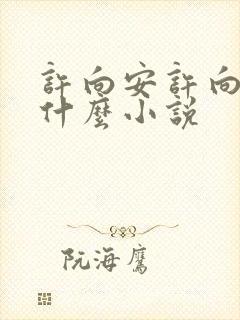 許向安許向
什麼小説
阮海鷹